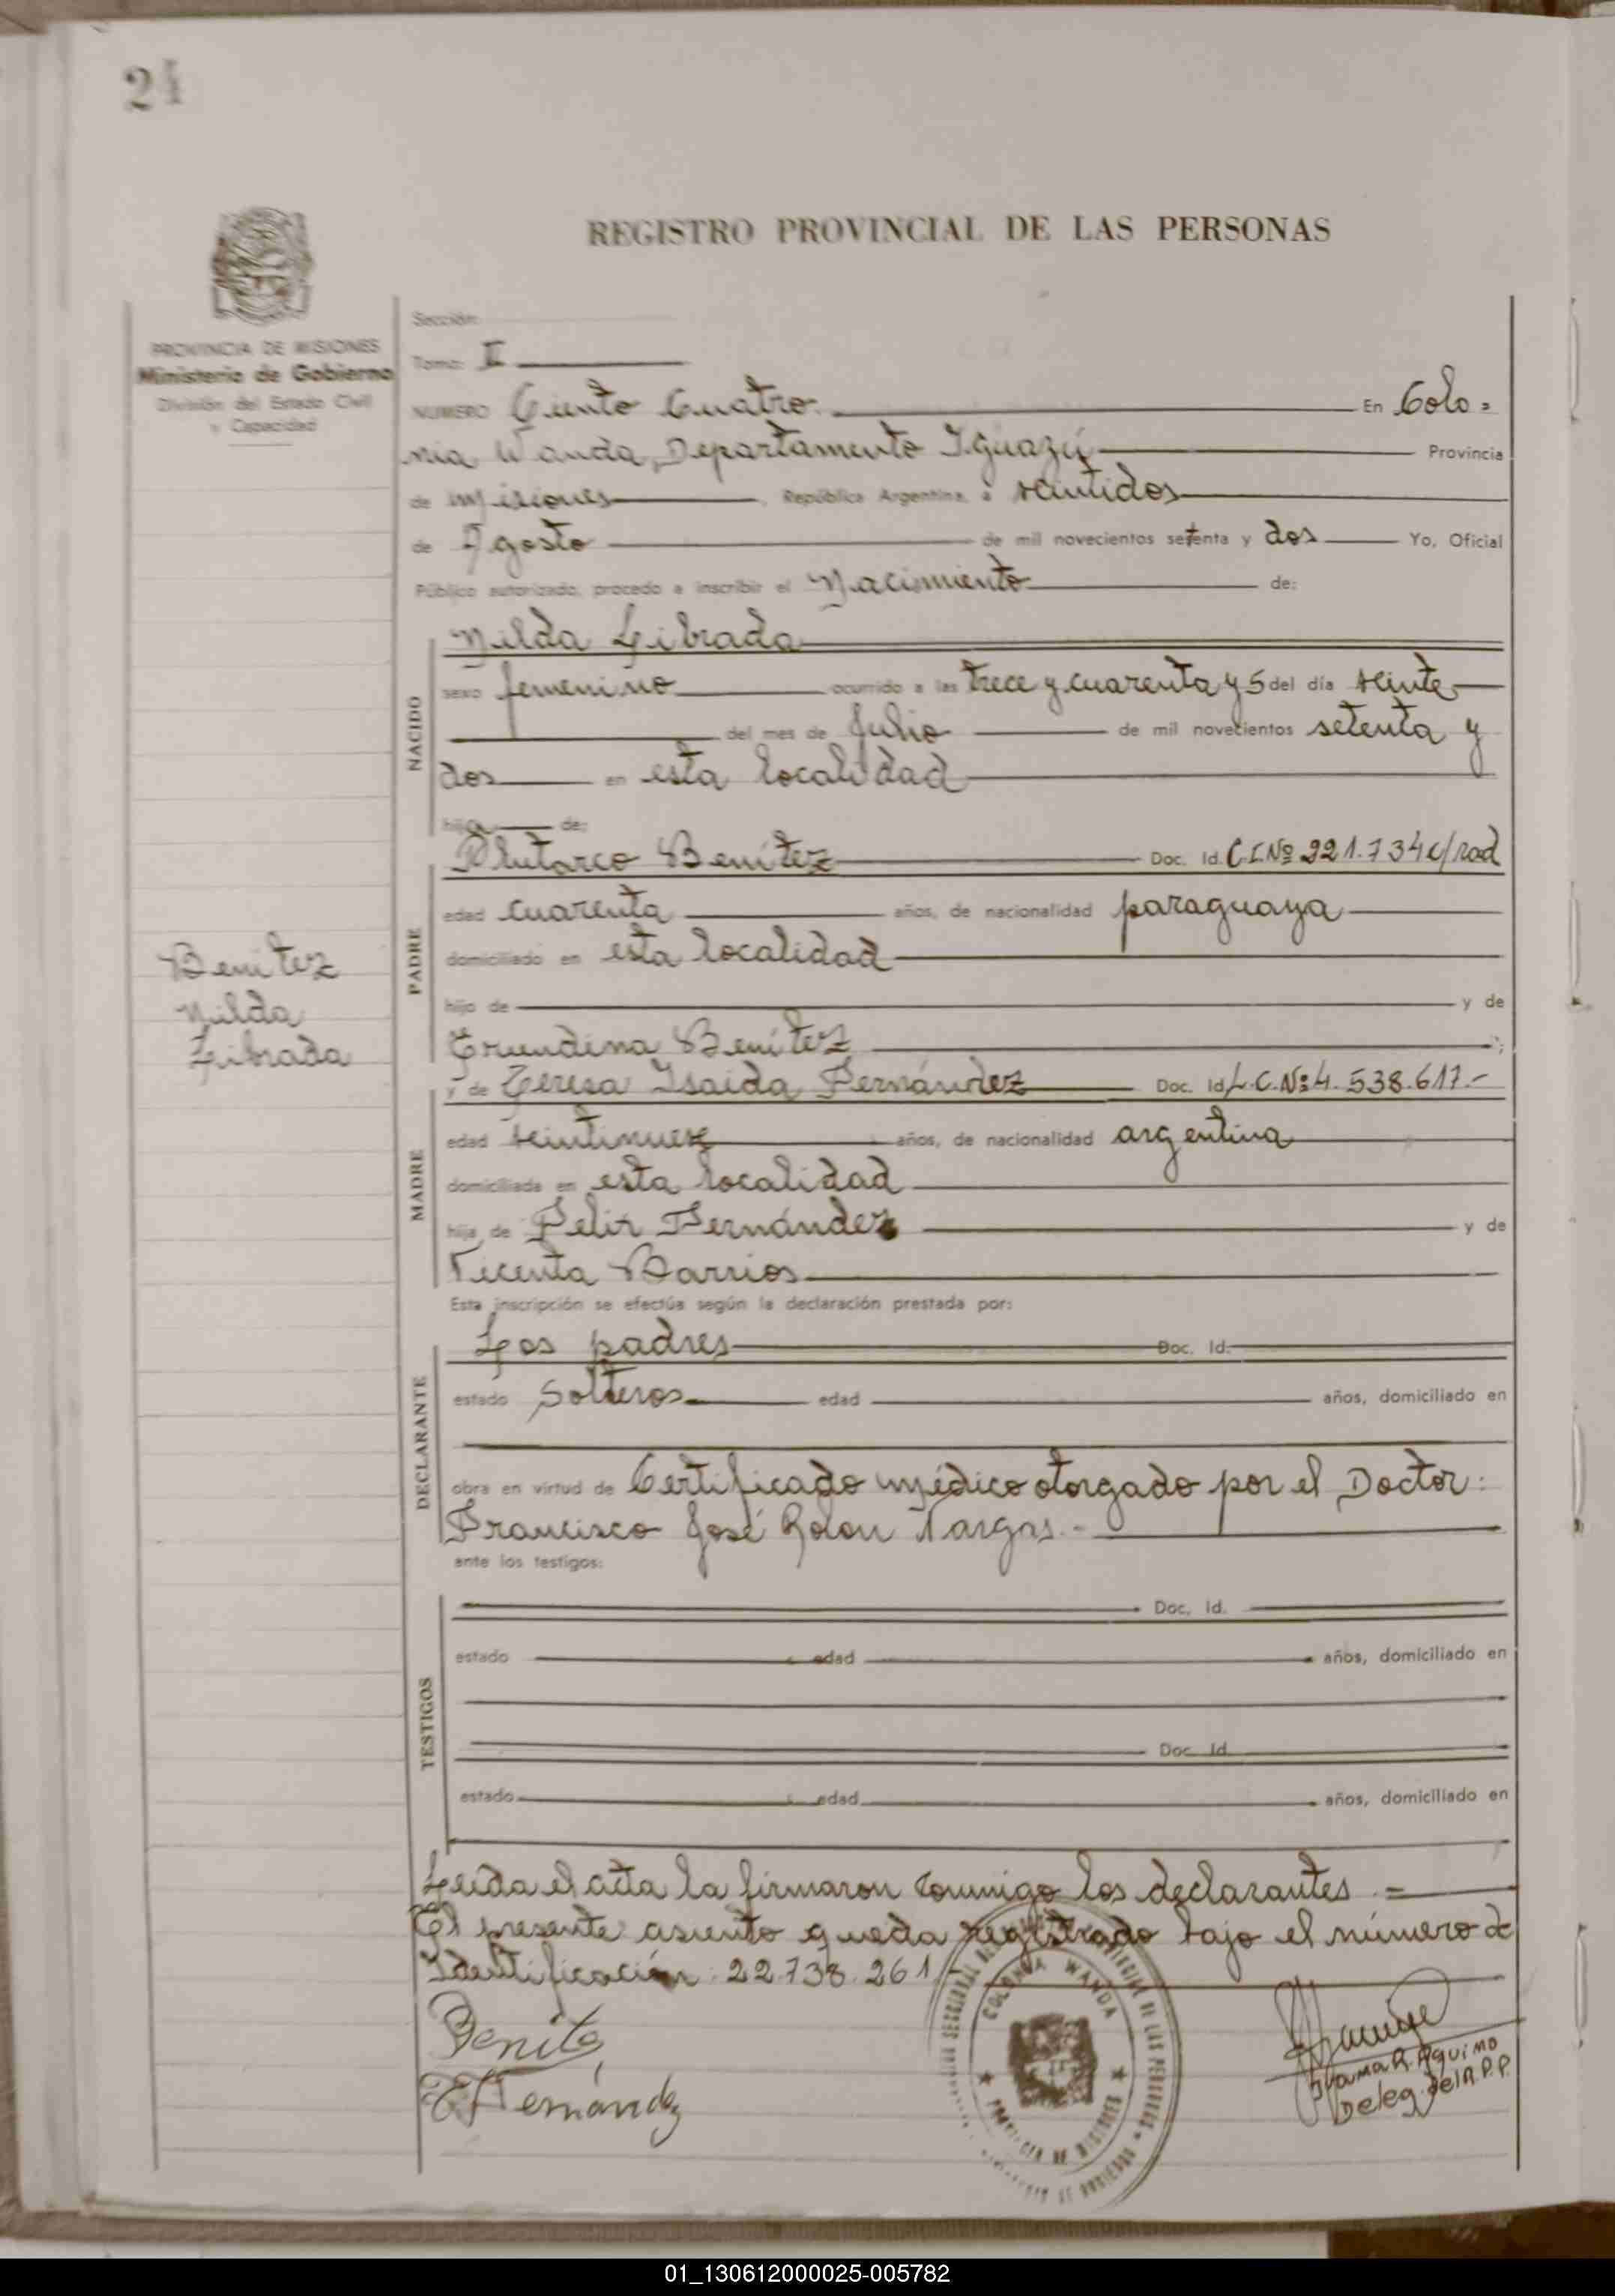 24
REGISTRO PROVINCIAL DE LAS PERSONAS
PROVINCIA DE MISIONES
Ministerio de Gobierno
División del Estado Civil
y Capacidad
Sección:
Tomo: II
NUMERO Ciento Cuatro. En Colo=
nia Wanda, Departamento Iguazú Provincia
de Misiones, República Argentina, a veintidos
de Agosto de mil novecientos setenta y dos Yo, Oficial
Público autorizado, procedo a inscribir el Nacimiento de:
NACIDO
Nilda Librada
sexo femenino ocurrido a las trece y cuarenta y 5 del día veinte
del mes de Julio de mil novecientos setenta y
dos en esta localidad
hija de:
PADRE
Plutarco Benítez Doc. Id. C.I.Nº 221.734 c/rad
edad cuarenta años, de nacionalidad paraguaya
domiciliado en esta localidad
hijo de y de
Erundina Benítez
Benitez
Nilda
Librada
MADRE
y de Teresa Isaida Fernández Doc. Id. L.C.Nº 4.538.617.-
edad veintinueve años, de nacionalidad argentina
domiciliada en esta localidad
hija de Felix Fernández y de
Vicenta Barrios
Esta inscripción se efectúa según la declaración prestada por:
DECLARANTE
Los padres Doc. Id.
estado Solteros edad años, domiciliado en
obra en virtud de Certificado médico otorgado por el Doctor:
Francisco José Rolon Vargas.-
ante los testigos:
TESTIGOS
Doc. Id.
estado edad años, domiciliado en
Doc. Id.
estado edad años, domiciliado en
Leida el acta la firmaron conmigo los declarantes.=
El presente asiento queda registrado bajo el número de
Identificación: 22.738.261.-
Benitez
Fernández
COLONIA WANDA
PROVINCIA DE MISIONES
R. Aquino
Deleg. del R.P.P.
01_130612000025-005782